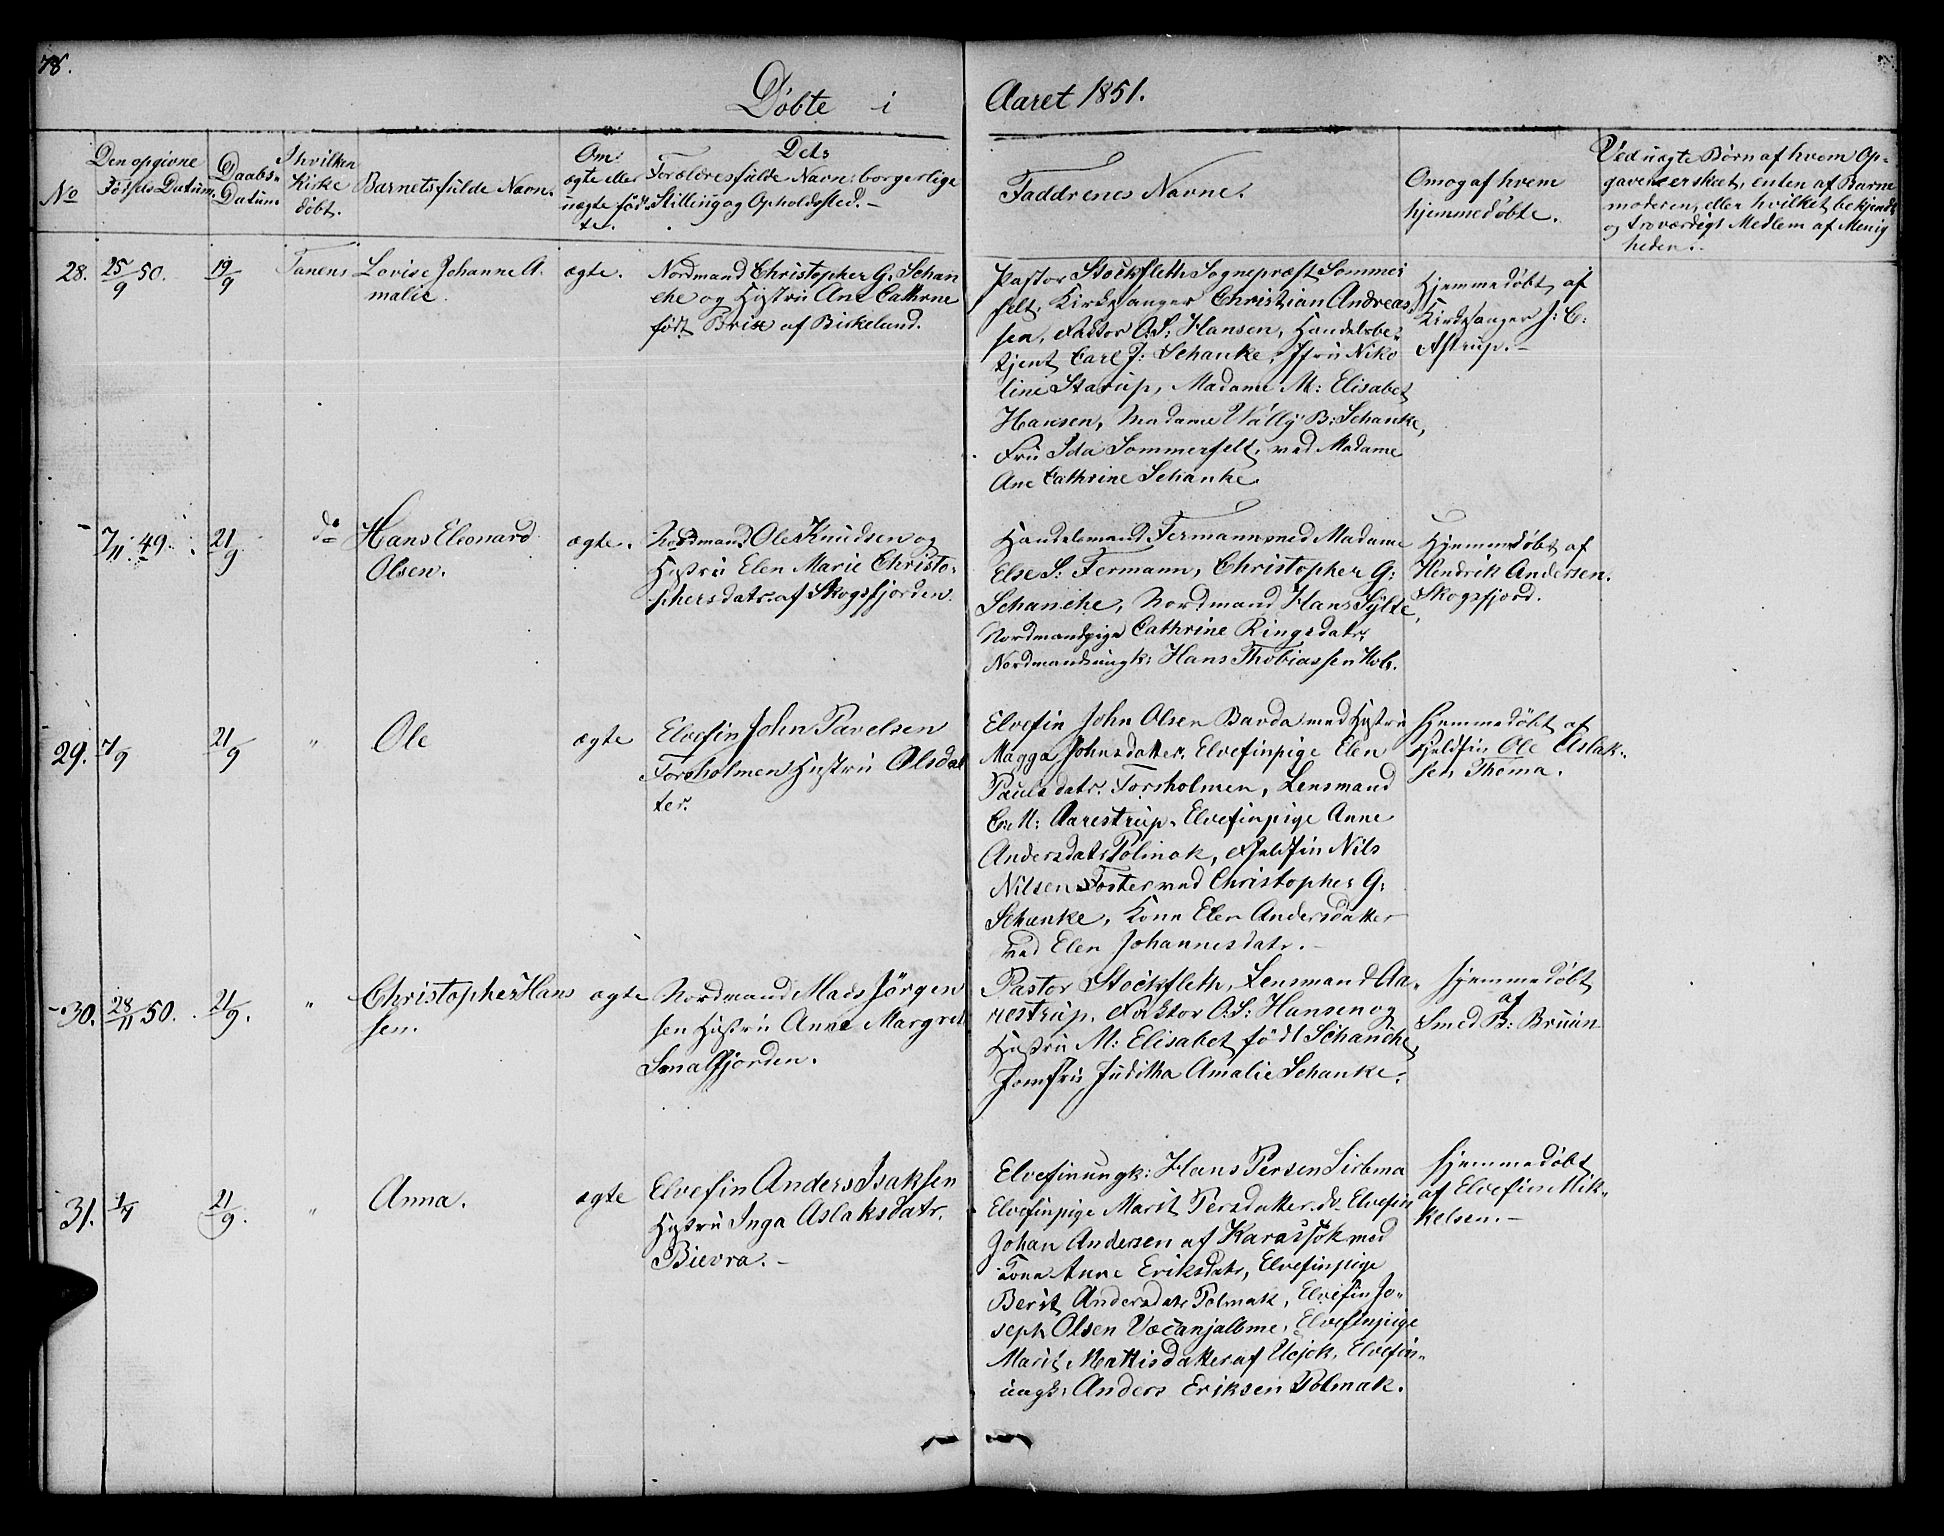 78.
Døbte i
Aaret 1851.
No
Den opgivne
Fødsels Datum.
Daabs-
Datum
I hvilken
Kirke
døbt.
Barnets fulde Navn.
Om
ægte eller
uægte fød-
te.
Dets
Forældres fulde Navn, borgerlige
Stilling og Opholdssted. -
Faddrenes Navne.
Om og af hvem
hjemmedøbte.
Ved uægte Børn af hvem Op-
gaven er skeet, enten af Barne
moderen, eller hvilket bekjendt
og troværdigt Medlem af Menig
heden.
28.
25/9 50.
19/9
Tanens
Lovise Johanne A-
malie.
ægte.
Nordmand Christopher G. Schan
che og Hustru Ane Cathrne
født Brix af Birkelund.
Pastor Stockfleth, Sognepræst Sommer
felt, Kirkesanger Christian Andreas
sen, Factor O. S: Hansen, Handelsbe-
tjent Carl J: Schanke, Jfru Niko
line Starup, Madame M: Elisabet
Hansen, Madame Wally B: Schanke,
Fru Ida Sommerfelt, ved Madame
Ane Cathrine Schanke
Hjemmedøbt af
Kirkesanger J: C:
Astrup. -
7/11 49.
21/9
do
Hans Eleonard
Olsen.
ægte.
Nordmand Ole Knudsen og
Hustru Elen Marie Christo-
phersdatr. af Skogsfjorden.
Handelsmand Fermann med Madame
Else S: Fermann, Christopher G:
Schanche, Nordmand Hans Sylte,
Nordmandspige Cathrine Ringsdatr,
Nordmandsungk: Hans Thobiassen Hols.
Hjemmedøbt af
Hendrik Andersen.
Skogsfjord.
29.
7/9
21/9
"
Ole
ægte
Elvefin John Pavelsen
Forsholmen Hustru Olsdat
ter.
Elvefin John Olsen Bavda med Hustru
Magga Johnsdatter. Elvefinpige Elen
Paulsdatr. Forsholmen, Lensmand
C. M: Aarestrup. Elvefinpige Anne
Andersdatr Polmak, Fjeldfin Nils
Nilsen Foster ved Christopher G:
Schanke, Kone Elen Andersdatter
ved Elen Johannesdatr. -
Hjemmedøbt af
Fjeldfin Ole Aslak-
sen Thoma.
30.
28/11 50.
21/9.
"
Christopher Hans
sen.
ægte
Nordmand Mads Jörgen
sen Hustru Anne Margret
Smalfjorden.
Pastor Stockfleth, Lensmand Aa-
restrup, Faktor O. S: Hansen og
Hustru M: Elisabet født Schanche,
Jomfru Juditha Amalie Schanke.
Hjemmedøbt
af
Smed B: Bruun
31.
21/9.
"
Anna.
ægte
Elvefin Anders Isaksen
Hustru Inga Aslaksdatr.
Bievra. -
Elvefinungk: Hans Persen Sirbma
Elvefinpige Marit Persdatter. do Elvefin
Johan Andersen af Karasjok med
Kone Anne Eriksdatr, Elvefinpige
Berit Andersdatr Polmak, Elvefin Jo-
seph Olsen Væcanjalbme, Elvefinpige
Marit Mattisdatter af Utsjok, Elvefin-
ungk: Anders Eriksen Polmak.
Hjemmedøbt
af Elvefin Mik-
kelsen. -